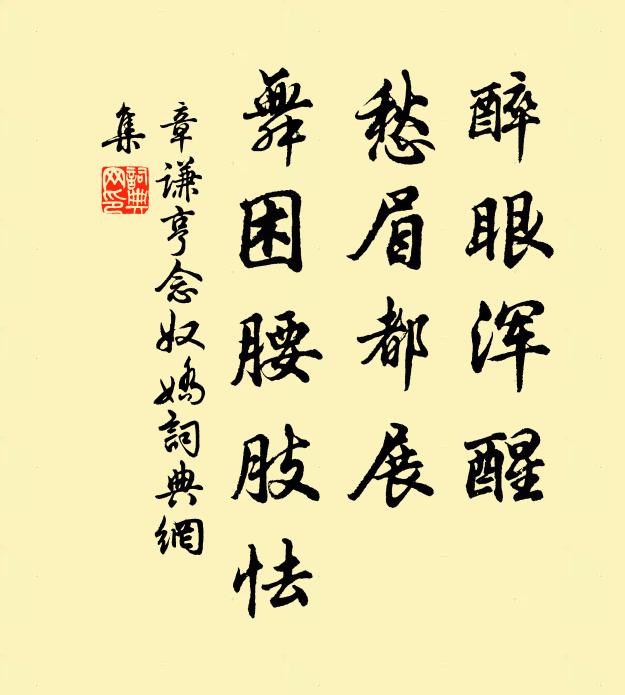 醉眼浑醒
愁眉都展
舞困腰肢怯
章谦亨念奴娇詞典網
集
詞典
网印